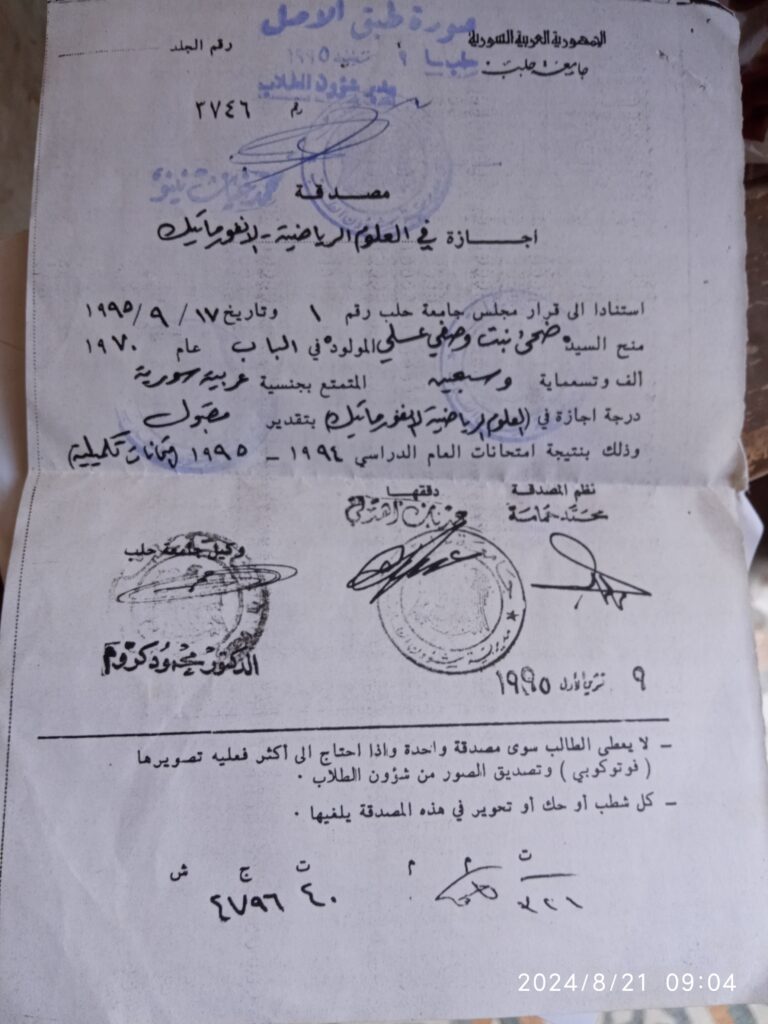 صورة طبق الاصل
الجمهورية العربية السورية
جامعة حلب
رقم الجلد
حلب في ٩ ١٩٩٥
مدير شؤون الطلاب
رقم ٣٧٤٦
مصدقة
اجازة في العلوم الرياضية - الانفورماتيك
استنادا الى قرار مجلس جامعة حلب رقم ١ وتاريخ ١٧ / ٩ / ١٩٩٥
منح السيدة ضحى بنت وصفي عسلي المولودة في الباب عام ١٩٧٠
ألف وتسعماية وسبعين المتمتع بجنسية عربية سورية
درجة اجازة في (العلوم الرياضية الانفورماتيك) بتقدير مقبول
وذلك بنتيجة امتحانات العام الدراسي ١٩٩٤ - ١٩٩٥ (امتحانات تكميلية)
نظم المصدقة
دققها
وكيل جامعة حلب
الدكتور محمود كروم
٩ تشرين الأول ١٩٩٥
- لا يعطى الطالب سوى مصدقة واحدة واذا احتاج الى أكثر فعليه تصويرها
( فوتوكوبي ) وتصديق الصور من شؤون الطلاب .
- كل شطب أو حك أو تحوير في هذه المصدقة يلغيها .
ت م م ت ج ش
٣٢٦ ٤٠ ٤٧٩٦
2024/8/21 09:04